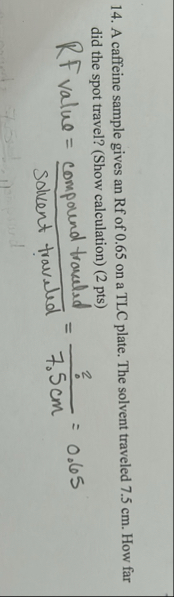 14. A caffeine sample gives an Rf of 0.65 on a TLC plate. The solvent traveled 7.5 cm. How far
did the spot travel? (Show calculation) (2 pts)
Rf value = compound traveled / solvent traveled = ? / 7.5cm = 0.65